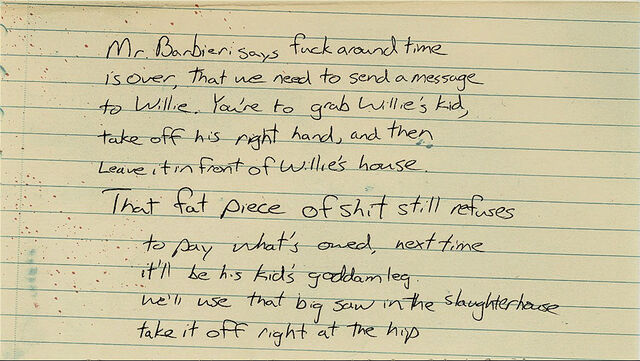 Mr Barbieri says fuck around time
is over, that we need to send a message
to Willie. You're to grab Willie's kid,
take off his right hand, and then
Leave it in front of Willie's house.
That fat piece of shit still refuses
to pay what's owed, next time
it'll be his kid's goddam leg
we'll use that big saw in the slaughterhouse
take it off right at the hip